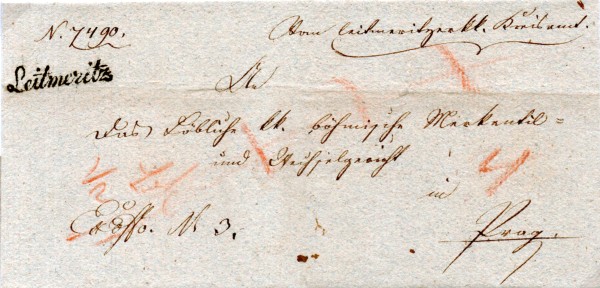 N. 7490.
Vom Leitmeritzer kk. Kreisamt.
Leitmeritz
An
Das Löbliche kk. böhmische Merkantil=
und Wechselgericht
in
Exoffo. N 3.
Prag.